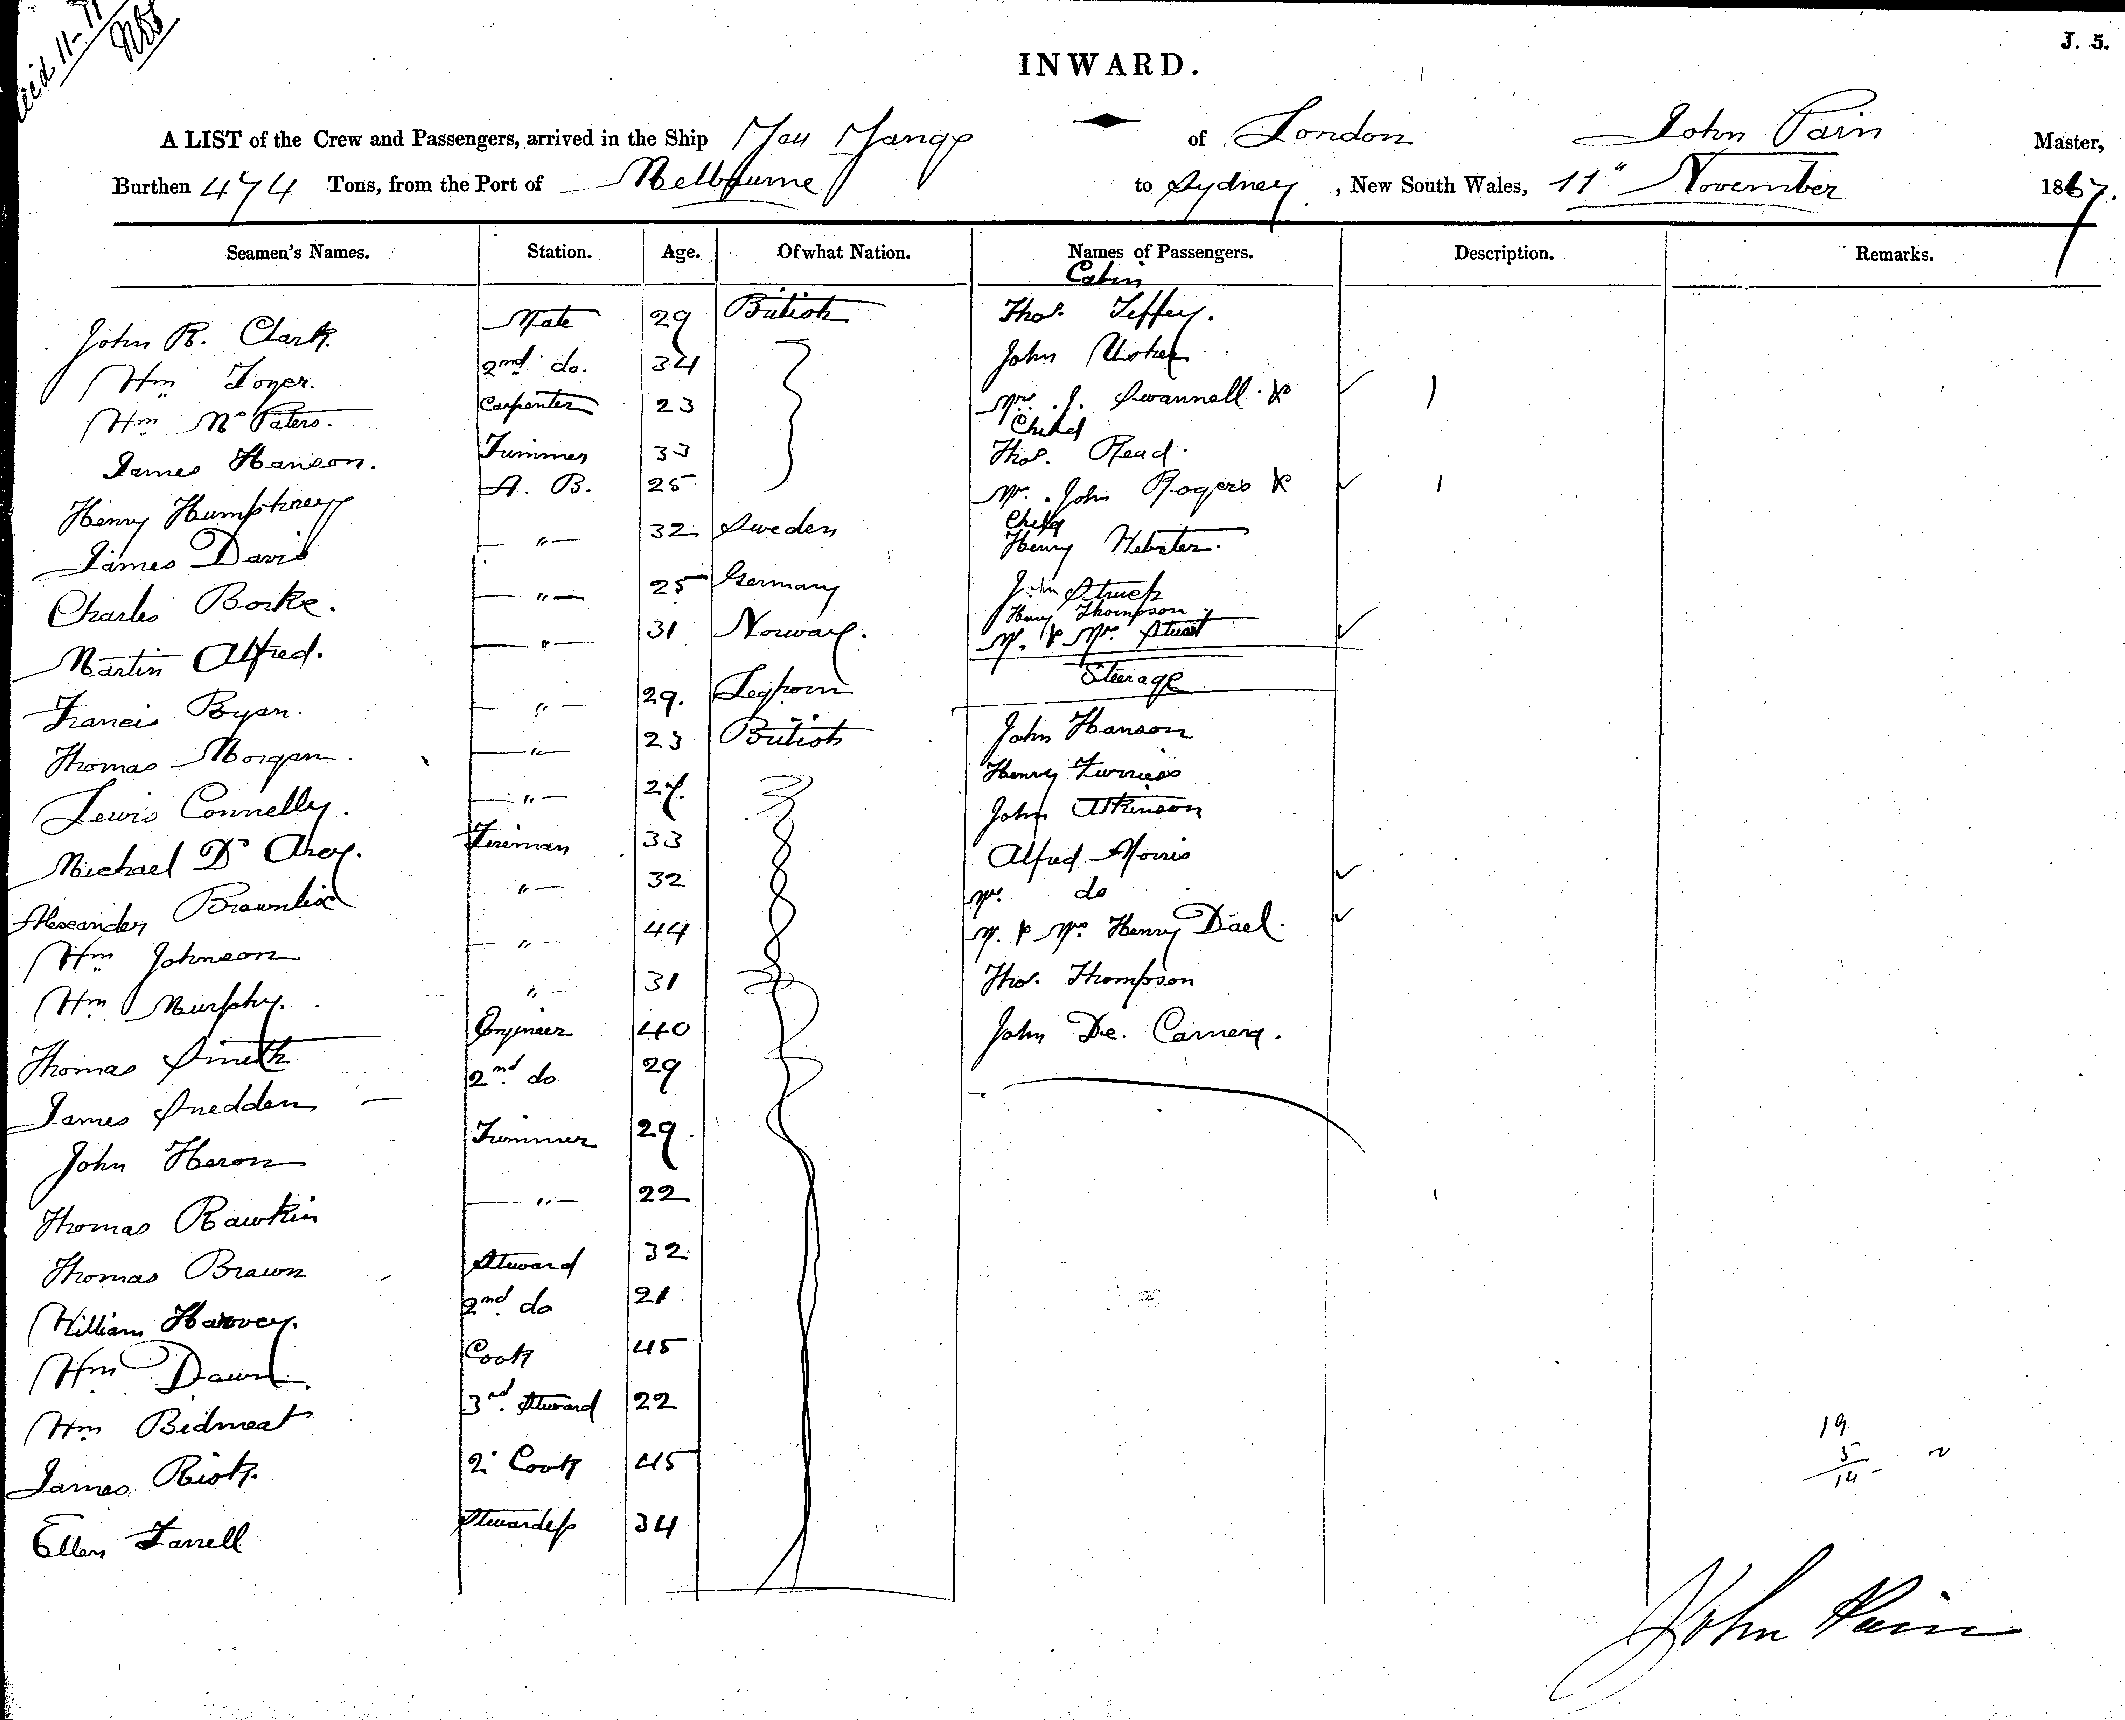 J. 5.
INWARD.
A LIST of the Crew and Passengers, arrived in the Ship You Yangs of London John Pain Master,
Burthen 474 Tons, from the Port of Melbourne to Sydney, New South Wales, 11" November 1867.
Seamen's Names. Station. Age. Of what Nation. Names of Passengers. Description. Remarks.
Cabin
John B. Clark Mate 29 British Thos. Jeffery.
Wm 2nd do. 34 John Usher
Wm Mc Paters. Carpenter 23 Mrs. J. Swannell &
Child
James Hanson. Trimmer 33 Thos. Read.
Henry Humphreys A. B. 25 Mr. John Rogers &
Child
James Davis " 32 Sweden Henry Webster.
Charles Borke. " 25 Germany John
Henry Thompson
Martin Alfred. " 31 Norway. Mr. & Mrs. Stuart
Steerage
Francis Ryan. " 29. Leghorn
Thomas Morgan. " 23 British John Hanson
Henry Furniss
Lewis Connelly. " 27. John Atkinson
Michael D'Arcy. Fireman 33 Alfred Morris
Alexander " 32 Mrs. do
Wm Johnson " 44 Mr. & Mrs. Henry Dael.
Wm Murphy. " 31 Thos. Thompson
Thomas Smith Engineer 40 John De. Camera.
James Snedden 2nd do 29
John Heron Trimmer 29
Thomas Rawkin " 22
Thomas Brown Steward 32
William Harvey. 2nd do 21
Wm Cook 45
Wm Bidmeat 3rd. Steward 22
James 2" Cook 45
Ellen Farrell Stewardess 34
19
5
14
John Pain